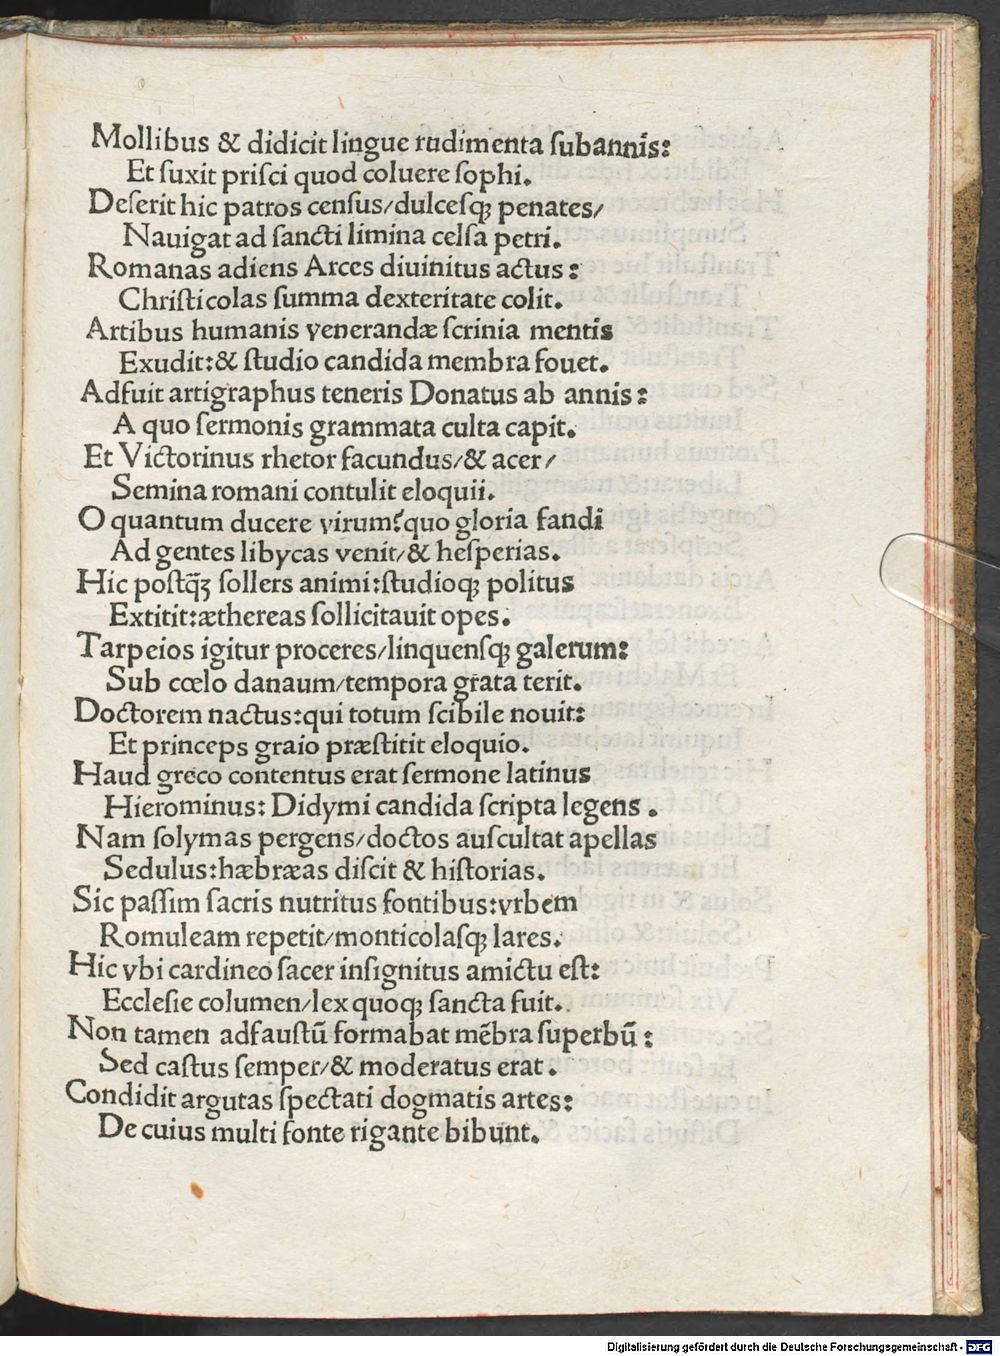 Mollibus & didicit lingue rudimenta ſubannis:
Et ſuxit priſci quod coluere ſophi.
Deſerit hic patros cenſus/dulceſqꝫ penates/
Nauigat ad ſancti limina celſa petri.
Romanas adiens Arces diuinitus actus:
Chriſticolas ſumma dexteritate colit.
Artibus humanis venerandæ ſcrinia mentis
Exudit:& ſtudio candida membra fouet.
Adfuit artigraphus teneris Donatus ab annis:
A quo ſermonis grammata culta capit.
Et Victorinus rhetor facundus/& acer/
Semina romani contulit eloquii.
O quantum ducere virum?quo gloria fandi
Ad gentes libycas venit/& heſperias.
Hic poſtq̄ꝫ ſollers animi:ſtudioqꝫ politus
Extitit:æthereas ſollicitauit opes.
Tarpeios igitur proceres/linquenſqꝫ galerum:
Sub cœlo danaum/tempora grata terit.
Doctorem nactus:qui totum ſcibile nouit:
Et princeps graio præſtitit eloquio.
Haud greco contentus erat ſermone latinus
Hierominus: Didymi candida ſcripta legens.
Nam ſolymas pergens/doctos auſcultat apellas
Sedulus:hæbræas diſcit & hiſtorias.
Sic paſſim ſacris nutritus fontibus:vrbem
Romuleam repetit/monticolaſqꝫ lares.
Hic vbi cardineo ſacer inſignitus amictu eſt:
Eccleſie columen/lex quoqꝫ ſancta fuit.
Non tamen adfauſtū formabat mēbra ſuperbū:
Sed caſtus ſemper/& moderatus erat.
Condidit argutas ſpectati dogmatis artes:
De cuius multi fonte rigante bibunt.
Digitalisierung gefördert durch die Deutsche Forschungsgemeinschaft - DFG